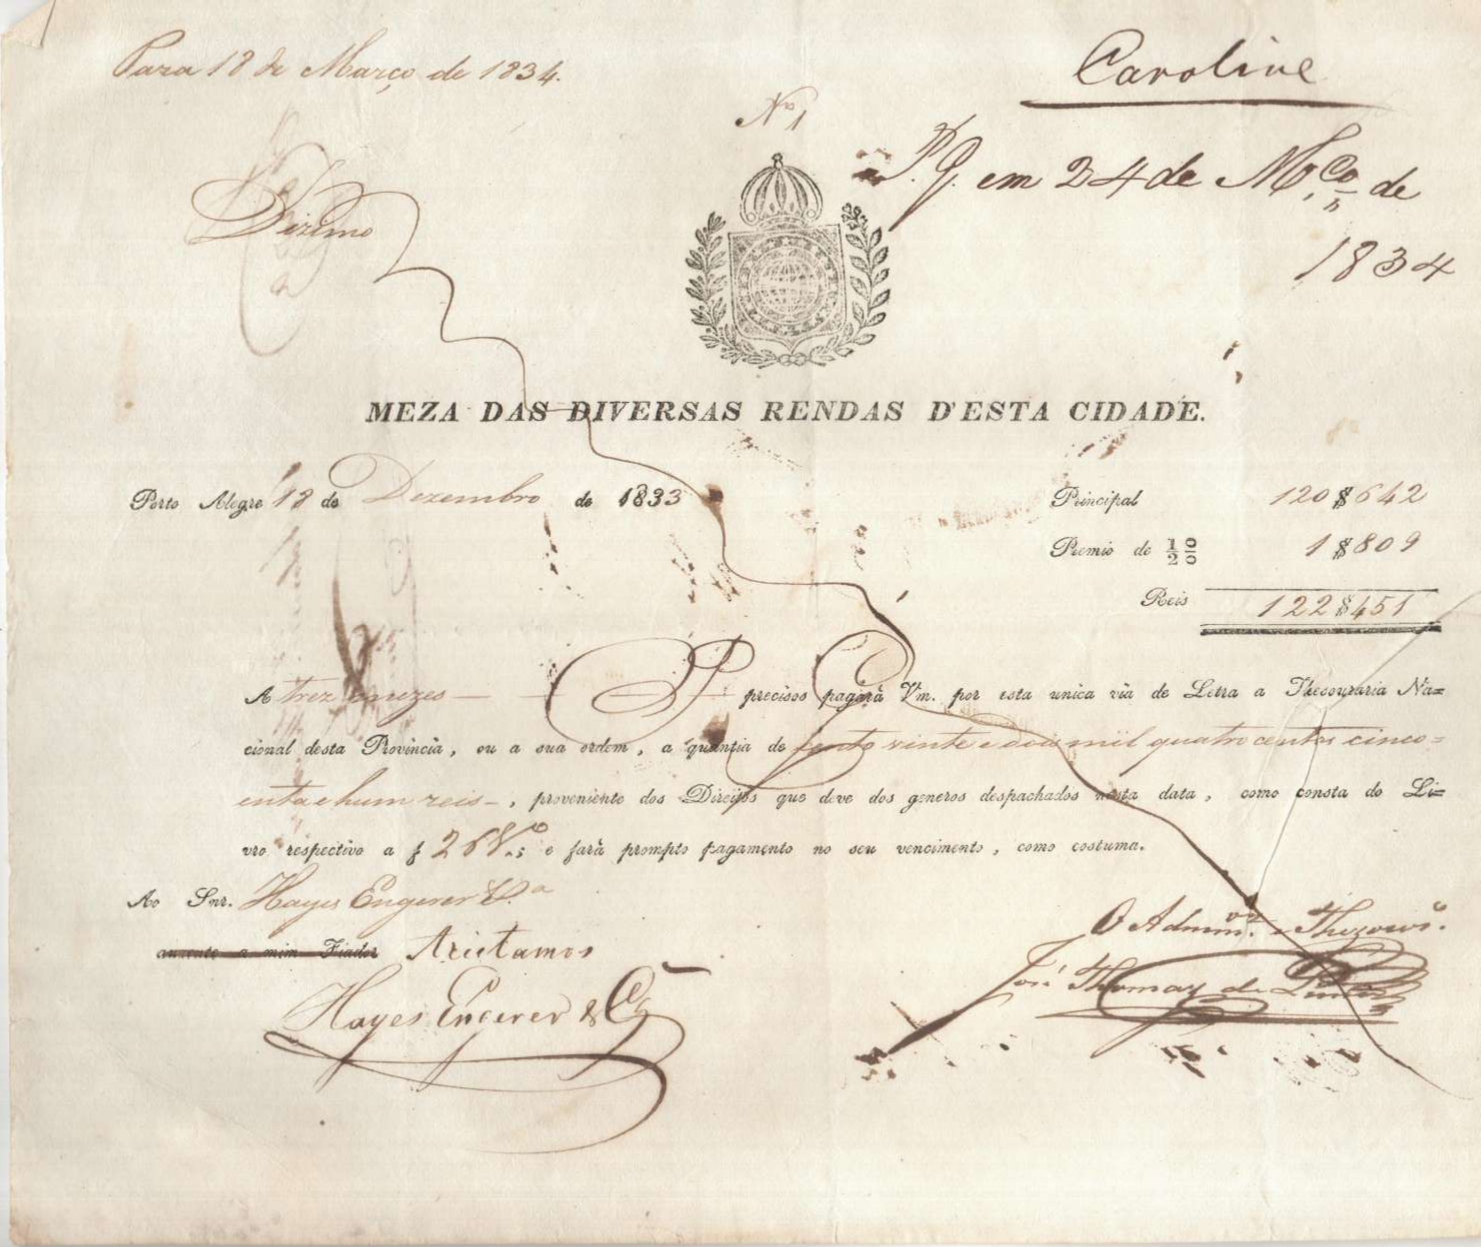 Para 18 de Março de 1834.
Caroline
Nº 1
P. G. em 24 de M.ço de
1834
Dizimo
MEZA DAS DIVERSAS RENDAS D'ESTA CIDADE.
Porto Alegre 18 de Dezembro de 1833
Principal 120$642
Premio de 1/2 0/0 1$809
Reis 122$451
A trez mezes — P precisos pagará Vm. por esta unica via de Letra a Thesouraria Na=
cional desta Provincia, ou a sua ordem, a quantia de cento vinte e dois mil quatro centos cinco=
enta e hum reis —, proveniente dos Direitos que deve dos generos despachados nesta data, como consta do Li=
vro respectivo a f 26 V.º; e fará prompto pagamento no seu vencimento, como costuma.
Ao Snr. Hayes Engerer & C.ª
a mim Fiador Aceitamos
Hayes Engerer & Cª
O Admin.or e Thezour.º
José Thomaz de